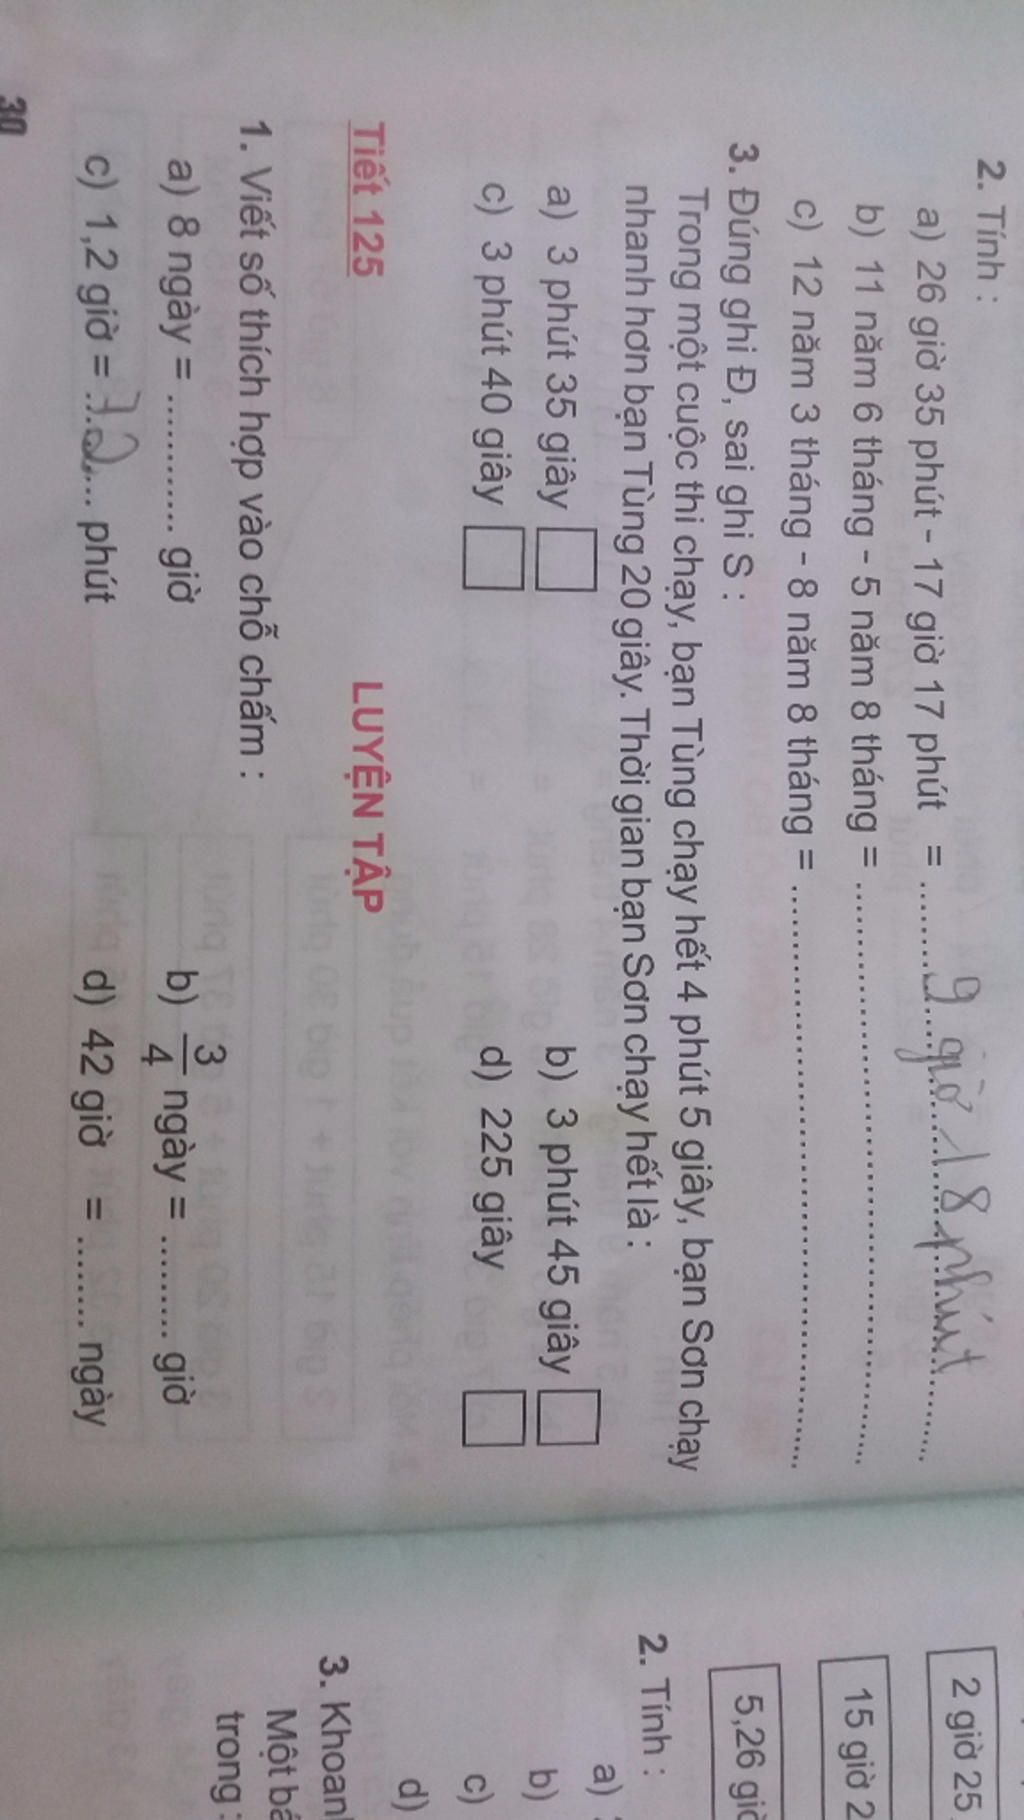 2. Tính :
a) 26 giờ 35 phút - 17 giờ 17 phút = ........9 giờ 18 phút........
b) 11 năm 6 tháng - 5 năm 8 tháng = ........................
c) 12 năm 3 tháng - 8 năm 8 tháng = ........................
3. Đúng ghi Đ, sai ghi S :
Trong một cuộc thi chạy, bạn Tùng chạy hết 4 phút 5 giây, bạn Sơn chạy
nhanh hơn bạn Tùng 20 giây. Thời gian bạn Sơn chạy hết là :
a) 3 phút 35 giây b) 3 phút 45 giây
c) 3 phút 40 giây d) 225 giây
Tiết 125 LUYỆN TẬP
1. Viết số thích hợp vào chỗ chấm :
a) 8 ngày = ........... giờ b) 3/4 ngày = ........ giờ
c) 1,2 giờ = ...72... phút d) 42 giờ = ........ ngày
30
2 giờ 25
15 giờ 2
5,26 giờ
2. Tính :
a)
b)
c)
d)
3. Khoanh
Một bá
trong :